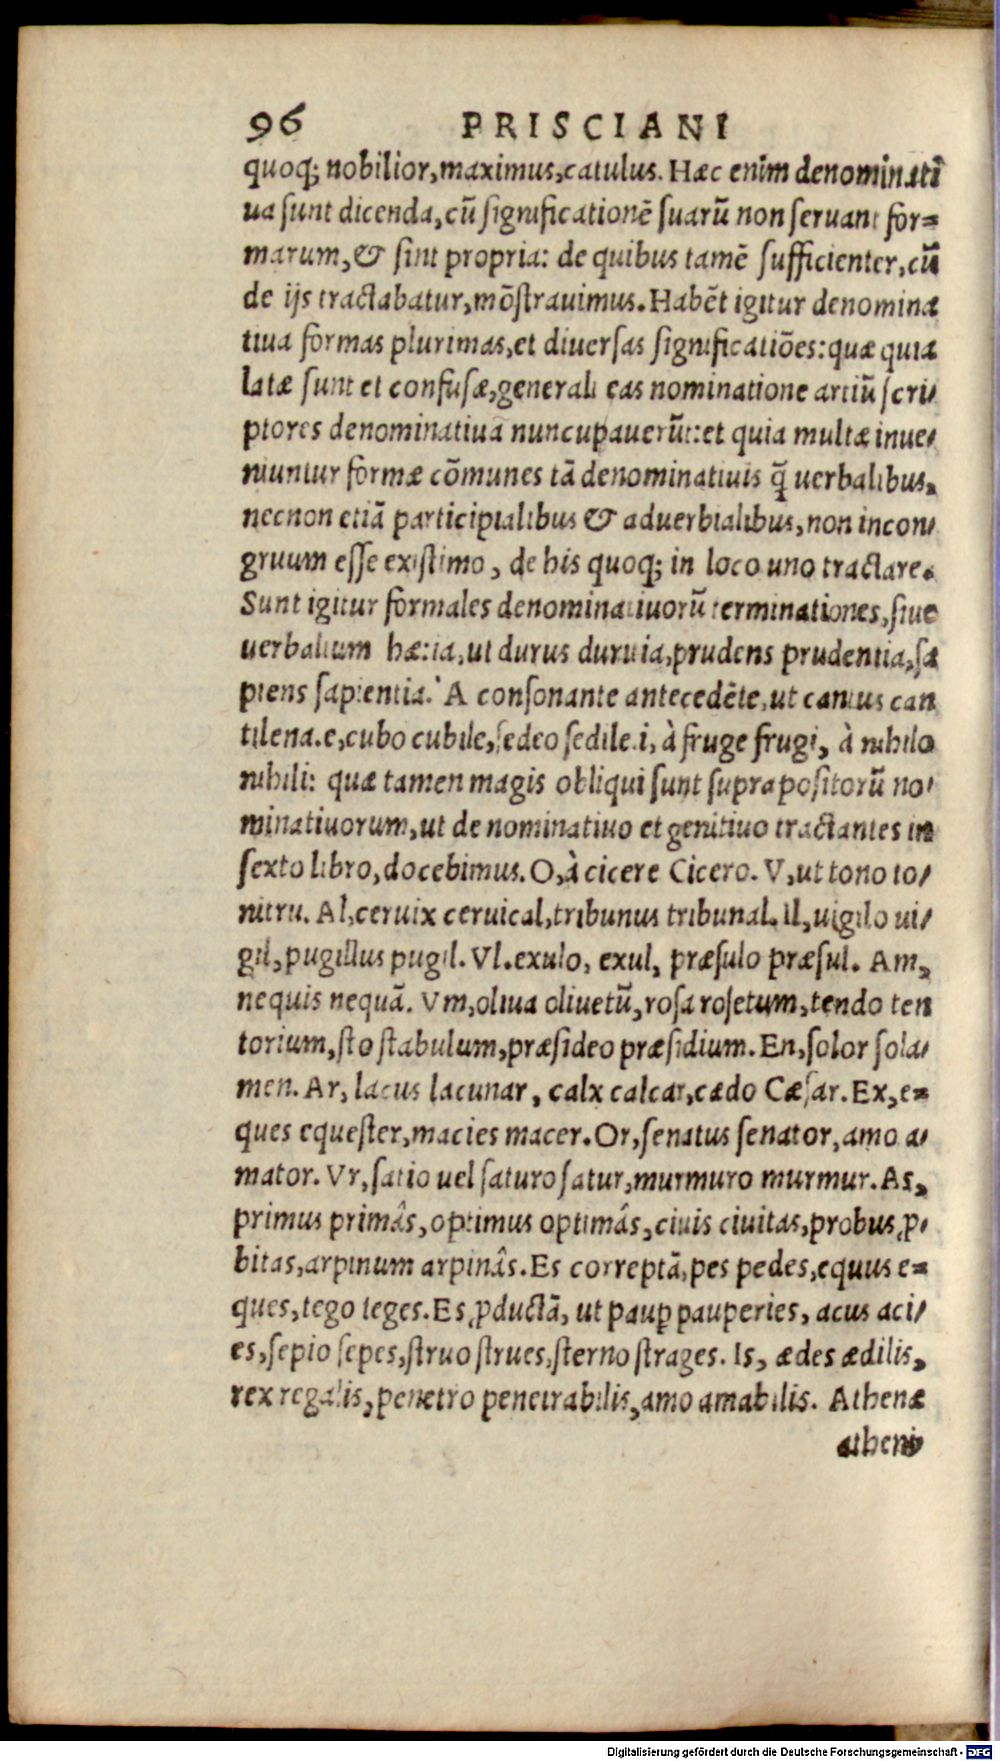 96 PRISCIANI
quoq; nobilior, maximus, catulus. Hæc enim denominati
ua sunt dicenda, cũ significationẽ suarũ non seruant for=
marum, & sint propria: de quibus tamẽ sufficienter, cũ
de ijs tractabatur, mõstrauimus. Habẽt igitur denomina
tiua formas plurimas, et diuersas significatiões: quæ quia
latæ sunt et confusæ, generali eas nominatione artiũ scri/
ptores denominatiua nuncupauerũt: et quia multæ inue/
niuntur formæ cõmunes tã denominatiuis q̃ uerbalibus,
necnon etiã participialibus & aduerbialibus, non incon/
gruum esse existimo, de his quoq; in loco uno tractare.
Sunt igitur formales denominatiuorũ terminationes, siue
uerbalium hæ: ia, ut durus duritia, prudens prudentia, sa
piens sapientia. A consonante antecedẽte, ut cantus can
tilena. e, cubo cubile, sedeo sedile. i, à fruge frugi, à nihilo
nihili: quæ tamen magis obliqui sunt suprapositorũ no/
minatiuorum, ut de nominatiuo et genitiuo tractantes in
sexto libro, docebimus. O, à cicere Cicero. V, ut tono to/
nitru. Al, ceruix ceruical, tribunus tribunal. Il, uigilo ui/
gil, pugillus pugil. Vl. exulo, exul, præsulo præsul. Am,
nequis nequã. Vm, oliua oliuetũ, rosa rosetum, tendo ten
torium, sto stabulum, præsideo præsidium. En, solor sola/
men. Ar, lacus lacunar, calx calcar, cædo Cæsar. Ex, e=
ques equester, macies macer. Or, senatus senator, amo a/
mator. Vr, satio uel saturo satur, murmuro murmur. As,
primus primâs, optimus optimâs, ciuis ciuitas, probus ꝓ/
bitas, arpinum arpinâs. Es correptã, pes pedes, equus e=
ques, tego teges. Es ꝓductã, ut pauꝑ pauperies, acus aci/
es, sepio sepes, struo strues, sterno strages. Is, ædes ædilis,
rex regalis, penetro penetrabilis, amo amabilis. Athenæ
atheni/
Digitalisierung gefördert durch die Deutsche Forschungsgemeinschaft - DFG